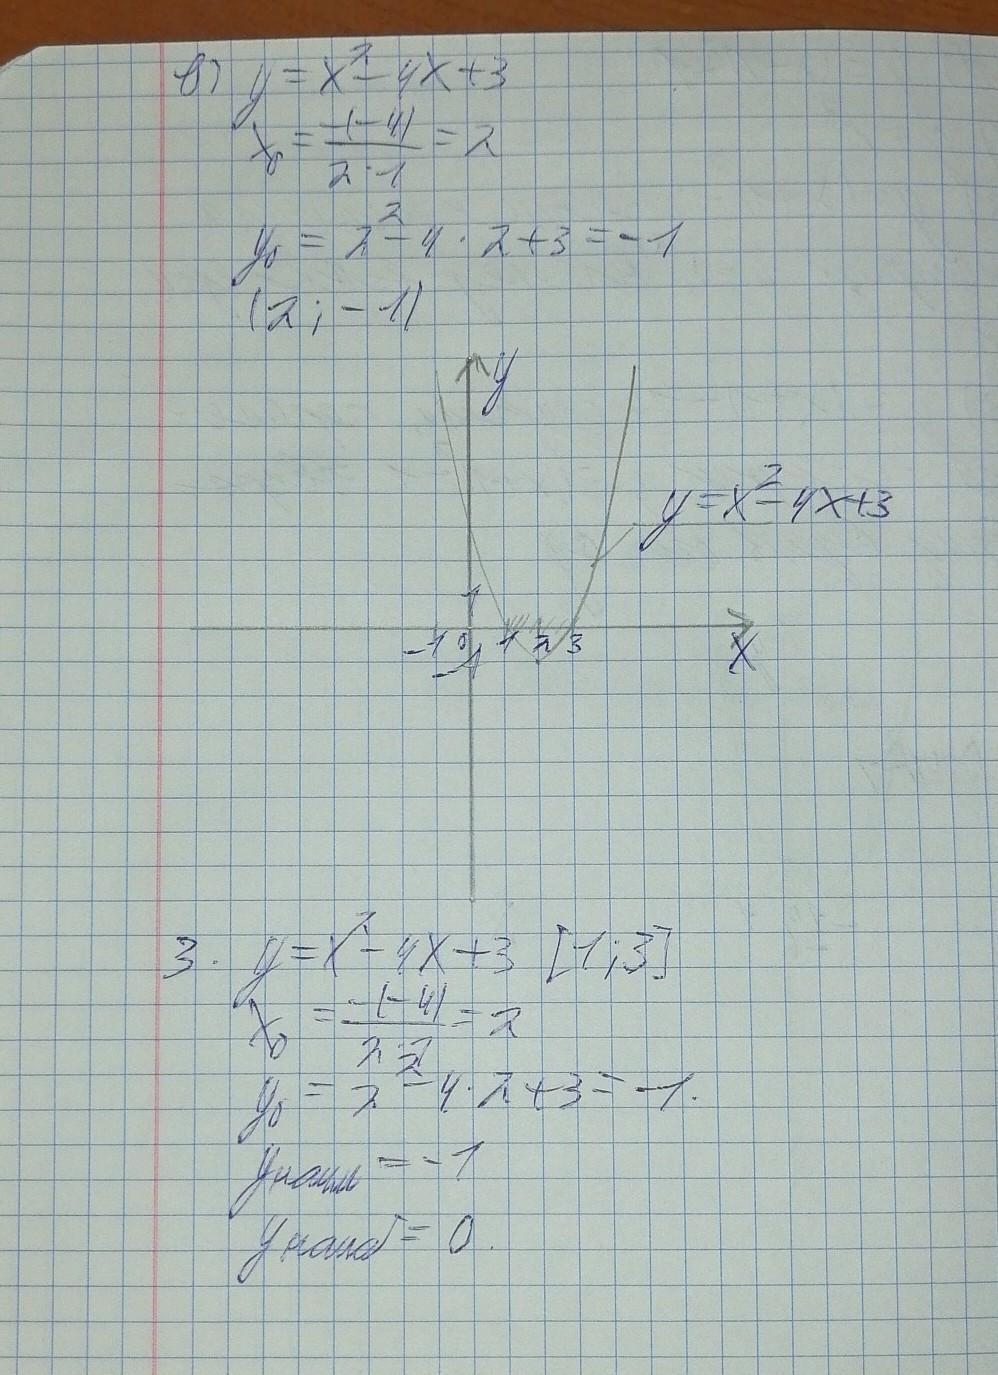 в) y = x² - 4x + 3
x₀ = -(-4) / 2·1 = 2
y₀ = 2² - 4 · 2 + 3 = -1
(2; -1)
y
y = x² - 4x + 3
1
-1 0 1 2 3
x
-1
3. y = x² - 4x + 3 [1; 3]
x₀ = -(-4) / 2 = 2
y₀ = 2² - 4 · 2 + 3 = -1.
yнаим = -1
yнаиб = 0.